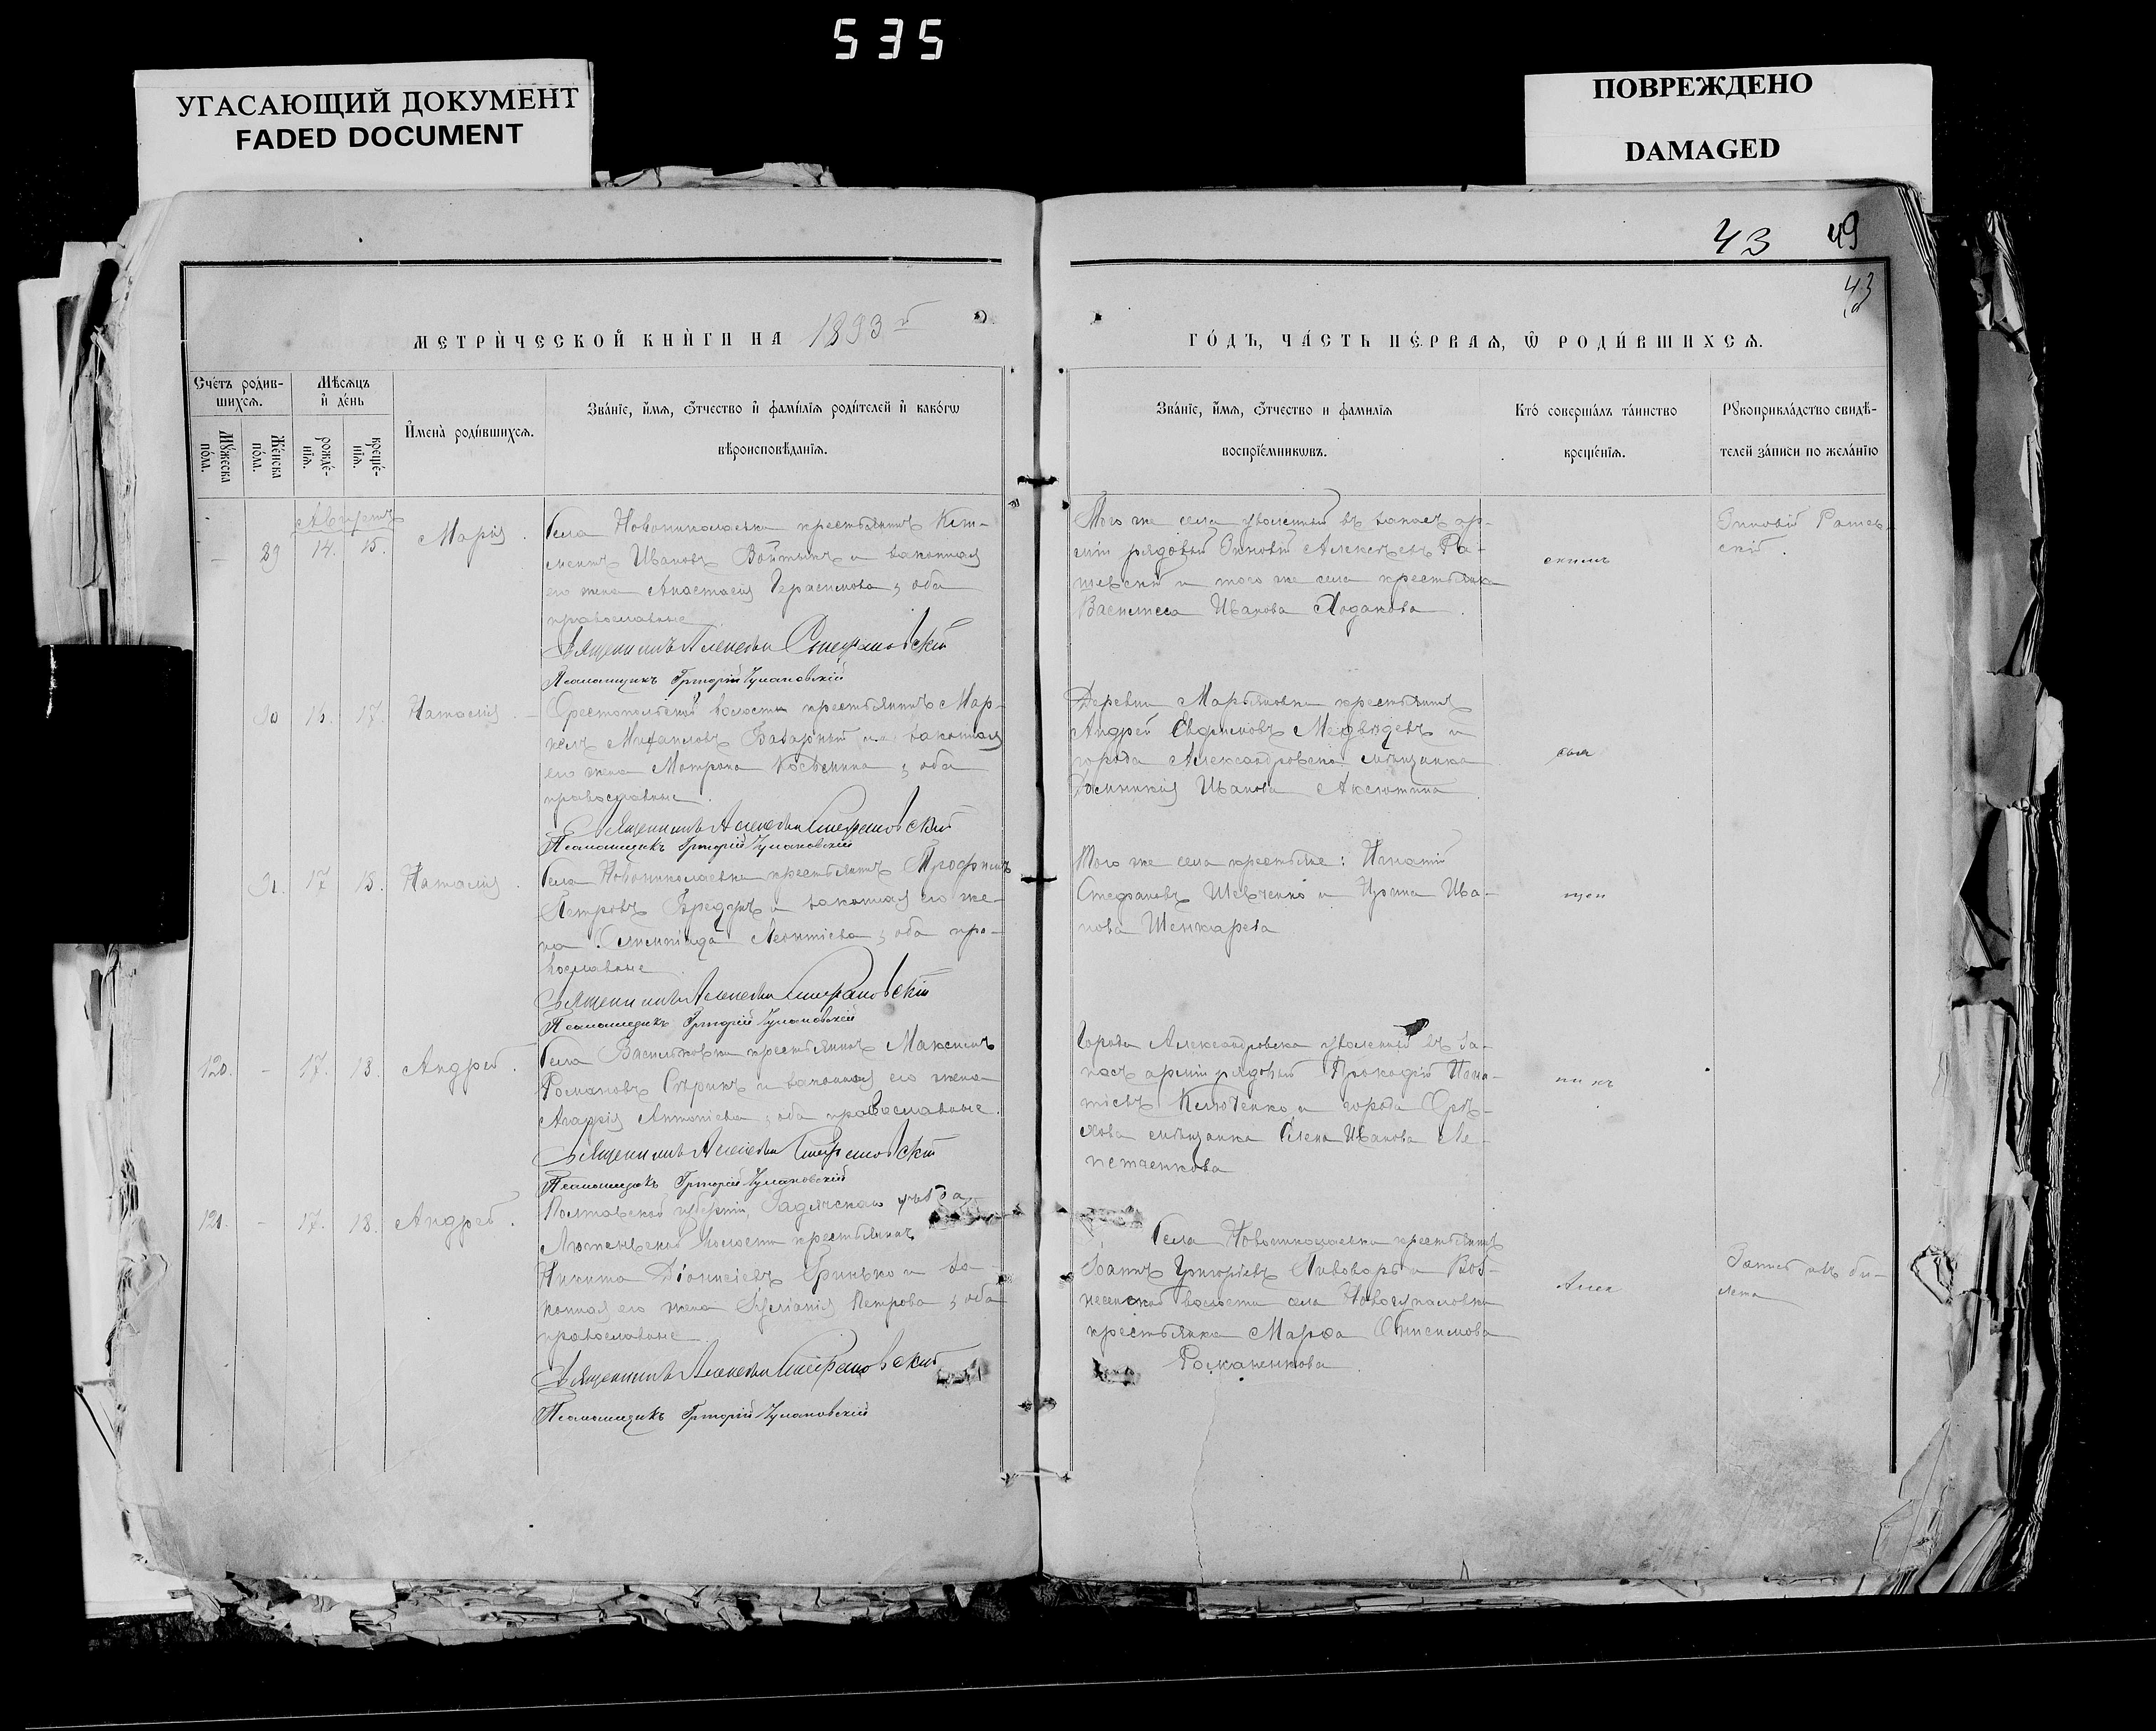 535
УГАСАЮЩИЙ ДОКУМЕНТ
FADED DOCUMENT
ПОВРЕЖДЕНО
DAMAGED
43 49
43
МЕТРИ́ЧЕСКОЙ КНИ́ГИ НА 1893 й
ГО́ДЪ, ЧА́СТЬ ПЕ́РВАѦ, Ѽ РОДИ́ВШИХСѦ.
Сче́тъ роди́в-
шихсѧ.
Мꙋ́жеска по́ла.
Же́нска по́ла.
Мѣ́сѧцъ и҆ де́нь
рожде́-нїѧ.
креще́-нїѧ.
И҆мена̀ роди́вшихсѧ.
Зва́нїе, и҆́мѧ, ѻ҆́тчество и҆ фами́лїѧ роди́телей и҆ како́гѡ
вѣроисповѣ́данїѧ.
Зва́нїе, и҆́мѧ, ѻ҆́тчество и фами́лїѧ
воспрїе́мникѡвъ.
Кто̀ соверша́лъ та́инство
креще́нїѧ.
Рꙋкоприкла́дство свидѣ́-
телей за́писи по жела́нїю
Августъ
– 89 14. 15. Марія.
Села Новониколаевки крестьянинъ Кли-
ментъ Ивановъ Войтынъ и законная
его жена Анастасія Герасимова, оба
православные
Священникъ Алексѣй Стефановскій
Псаломщикъ Григорій Чулановскій
Того же села уволенный въ запасъ ар-
міи рядовый Зиновій Алексѣевъ Ра-
шевскій и того же села крестьянка
Василиса Иванова Ходакова.
Зиновій Рашев-
скій.
90 16. 17. Наталія.
Орестопольской волости крестьянинъ Мар-
келъ Михаиловъ Базарный и законная
его жена Матрона Косьмина, оба
православные.
Священникъ Алексѣй Стефановскій
Псаломщикъ Григорій Чулановскій
Деревни Марьяновки крестьянинъ
Андрей Евфимовъ Медвѣдевъ и
города Александровска мѣщанка
Домникія Иванова Аксютина
91. 17 18. Наталія.
Села Новониколаевки крестьянинъ Трофимъ
Петровъ Бредунъ и законная его же-
на Олимпіада Леонтіева, оба пра-
вославные.
Священникъ Алексѣй Стефановскій
Псаломщикъ Григорій Чулановскій
Того же села крестьяне: Игнатій
Стефановъ Шевченко и Ирина Ива-
нова Шенкарева
120. – 17. 18. Андрей.
Села Васильковки крестьянинъ Максимъ
Романовъ Сѣрикъ и законная его жена
Агафія Антоніева, оба православные.
Священникъ Алексѣй Стефановскій
Псаломщикъ Григорій Чулановскій
Города Александровска уволенный въ за-
пасъ арміи рядовый Прокофій Игна-
тіевъ Ключенко и города Орѣ-
хова мѣщанка Елена Иванова Ле-
петченкова
121. – 17. 18. Андрей.
Полтавской губерніи, Гадячскаго уѣзда
Лютеньской волости крестьянинъ
Никита Діонисіевъ Гринько и за-
конная его жена Петрова, оба
православные.
Священникъ Алексѣй Стефановскій
Псаломщикъ Григорій Чулановскій
Села Новониколаевки крестьянинъ
Іоаннъ Григоріевъ Пивоваръ и Воз-
несенской волости села Новогупаловки
крестьянка Марѳа Онисимова
Романенкова.